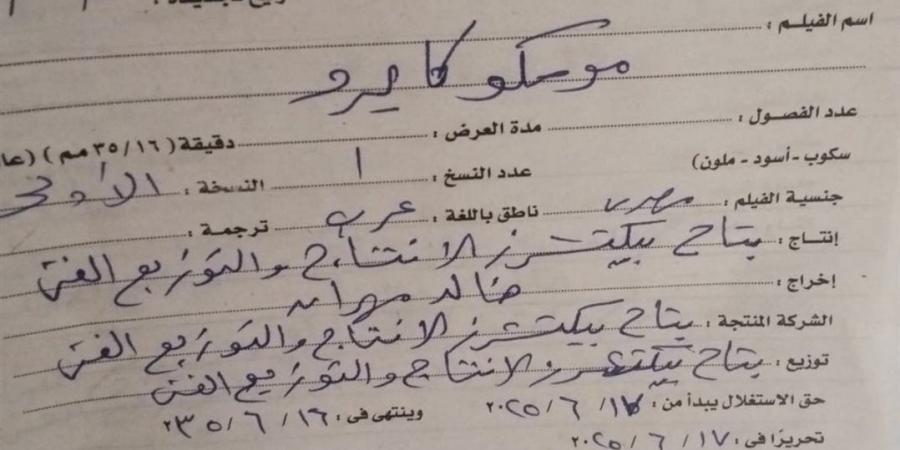 اسم الفيلم :
موسكو كايرو
عدد الفصول : مدة العرض : دقيقة ( ٣٥/١٦ مم )
سكوب - أسود - ملون) عدد النسخ : ١ النسخة : الأولى
جنسية الفيلم : مصرى ناطق باللغة : عربى ترجمة :
إنتاج : بيكتشرز للانتاج والتوزيع الفنى
إخراج : خالد مهران
الشركة المنتجة : بيكتشرز للانتاج والتوزيع الفنى
توزيع : بيكتشرز للانتاج والتوزيع الفنى
حق الاستغلال يبدأ من : ١٧/ ٦ /٢٠٢٥ وينتهى فى : ١٦/ ٦ /
تحريرًا فى : ١٧/ ٦ /٢٠٢٥